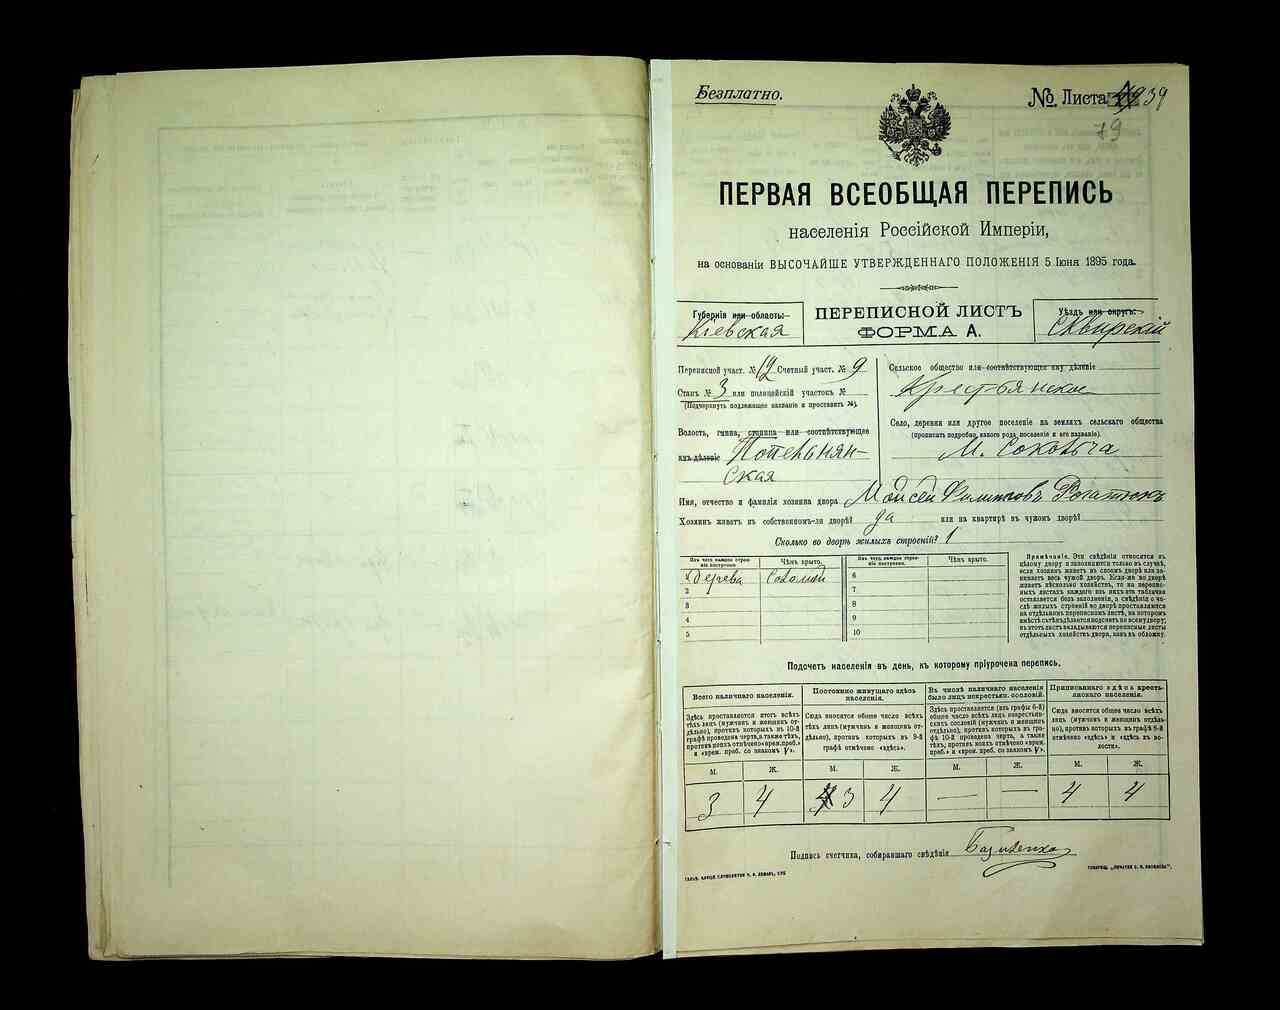 Безплатно.
№ Листа 39
79
ПЕРВАЯ ВСЕОБЩАЯ ПЕРЕПИСЬ
населенія Россійской Имперіи,
на основаніи ВЫСОЧАЙШЕ УТВЕРЖДЕННАГО ПОЛОЖЕНІЯ 5 Іюня 1895 года.
Губернія или область:
Кіевская
ПЕРЕПИСНОЙ ЛИСТЪ
ФОРМА А.
Уѣздъ или округъ:
Сквирскій
Переписной участ. № 12 Счетный участ. № 9
Станъ № 3 или полицейскій участокъ №
(Подчеркнуть подлежащее названіе и проставить №).
Волость, гмина, станица или соотвѣтствующее
имъ дѣленіе Попельнян-
ская
Сельское общество или соотвѣтствующее ему дѣленіе
Крестьянское
Село, деревня или другое поселеніе на земляхъ сельскаго общества
(прописать подробно, какого рода поселеніе и его названіе).
М. Соколча
Имя, отчество и фамилія хозяина двора Мойсей Филиповъ Рогатюкъ
Хозяинъ живетъ въ собственномъ-ли дворѣ? да или на квартирѣ въ чужомъ дворѣ?
Сколько во дворѣ жилыхъ строеній? 1
Изъ чего каждое строе-
ніе построено.
Чѣмъ крыто.
Изъ чего каждое строе-
ніе построено.
Чѣмъ крыто.
1 дерева Соломой 6
2 7
3 8
4 9
5 10
Примѣчаніе. Эти свѣдѣнія относятся къ
цѣлому двору и заполняются только въ случаѣ,
если хозяинъ живетъ въ своемъ дворѣ или за-
нимаетъ весь чужой дворъ. Если-же во дворѣ
живетъ нѣсколько хозяйствъ, то на перепис-
ныхъ листахъ каждаго изъ нихъ эта табличка
оставляется безъ заполненія, а свѣдѣнія о чи-
слѣ жилыхъ строеній во дворѣ проставляются
на отдѣльномъ переписномъ листѣ, на которомъ
вмѣстѣ съ тѣмъ дѣлается подсчетъ по всему двору;
въ этотъ листъ вкладываются переписные листы
отдѣльныхъ хозяйствъ двора, какъ въ обложку.
Подсчетъ населенія въ день, къ которому пріурочена перепись.
Всего наличнаго населенія.
Здѣсь проставляется итогъ всѣхъ
тѣхъ лицъ (мужчинъ и женщинъ от-
дѣльно), противъ которыхъ въ 10-й
графѣ проведена черта, а также тѣхъ,
противъ коихъ отмѣчено «врем. преб.»
и «врем. преб. со знакомъ V».
Постоянно живущаго здѣсь
населенія.
Сюда вносится общее число всѣхъ
тѣхъ лицъ (мужчинъ и женщинъ от-
дѣльно), противъ которыхъ въ 9-й
графѣ отмѣчено «здѣсь».
Въ числѣ наличнаго населенія
было лицъ некрестьян. сословій.
Здѣсь проставляется (изъ графы 6-й)
общее число всѣхъ лицъ некрестьян-
скихъ сословій (мужчинъ и женщинъ
отдѣльно), противъ которыхъ въ гра-
фѣ 10-й проведена черта, а также
тѣхъ, противъ коихъ отмѣчено «врем.
преб.» и «врем. преб. со знакомъ V».
Приписаннаго здѣсь кресть-
янскаго населенія.
Сюда вносится общее число всѣхъ
лицъ (мужчинъ и женщинъ отдѣль-
но), противъ которыхъ въ графѣ 8-й
отмѣчено «здѣсь» и «здѣсь въ во-
лости».
М. Ж. М. Ж. М. Ж. М. Ж.
3 4 4 3 4 — — 4 4
Подпись счетчика, собиравшаго свѣдѣнія